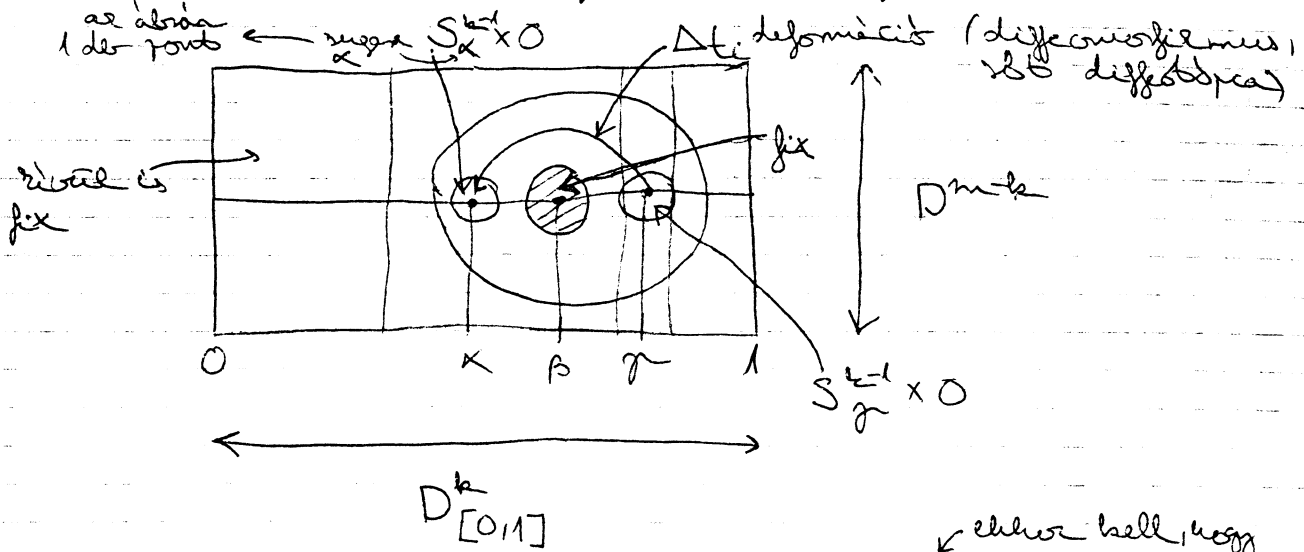 az ábrán
1 db pont ← sugara α S_α^{k-1}×0
Δt_i deformáció (diffeomorfizmus,
sőt diffeotópia)
kívül is
fix
fix
D^{m-k}
0 α β γ 1
S_γ^{k-1} × 0
D^k_{[0,1]}
ehhez kell, hogy